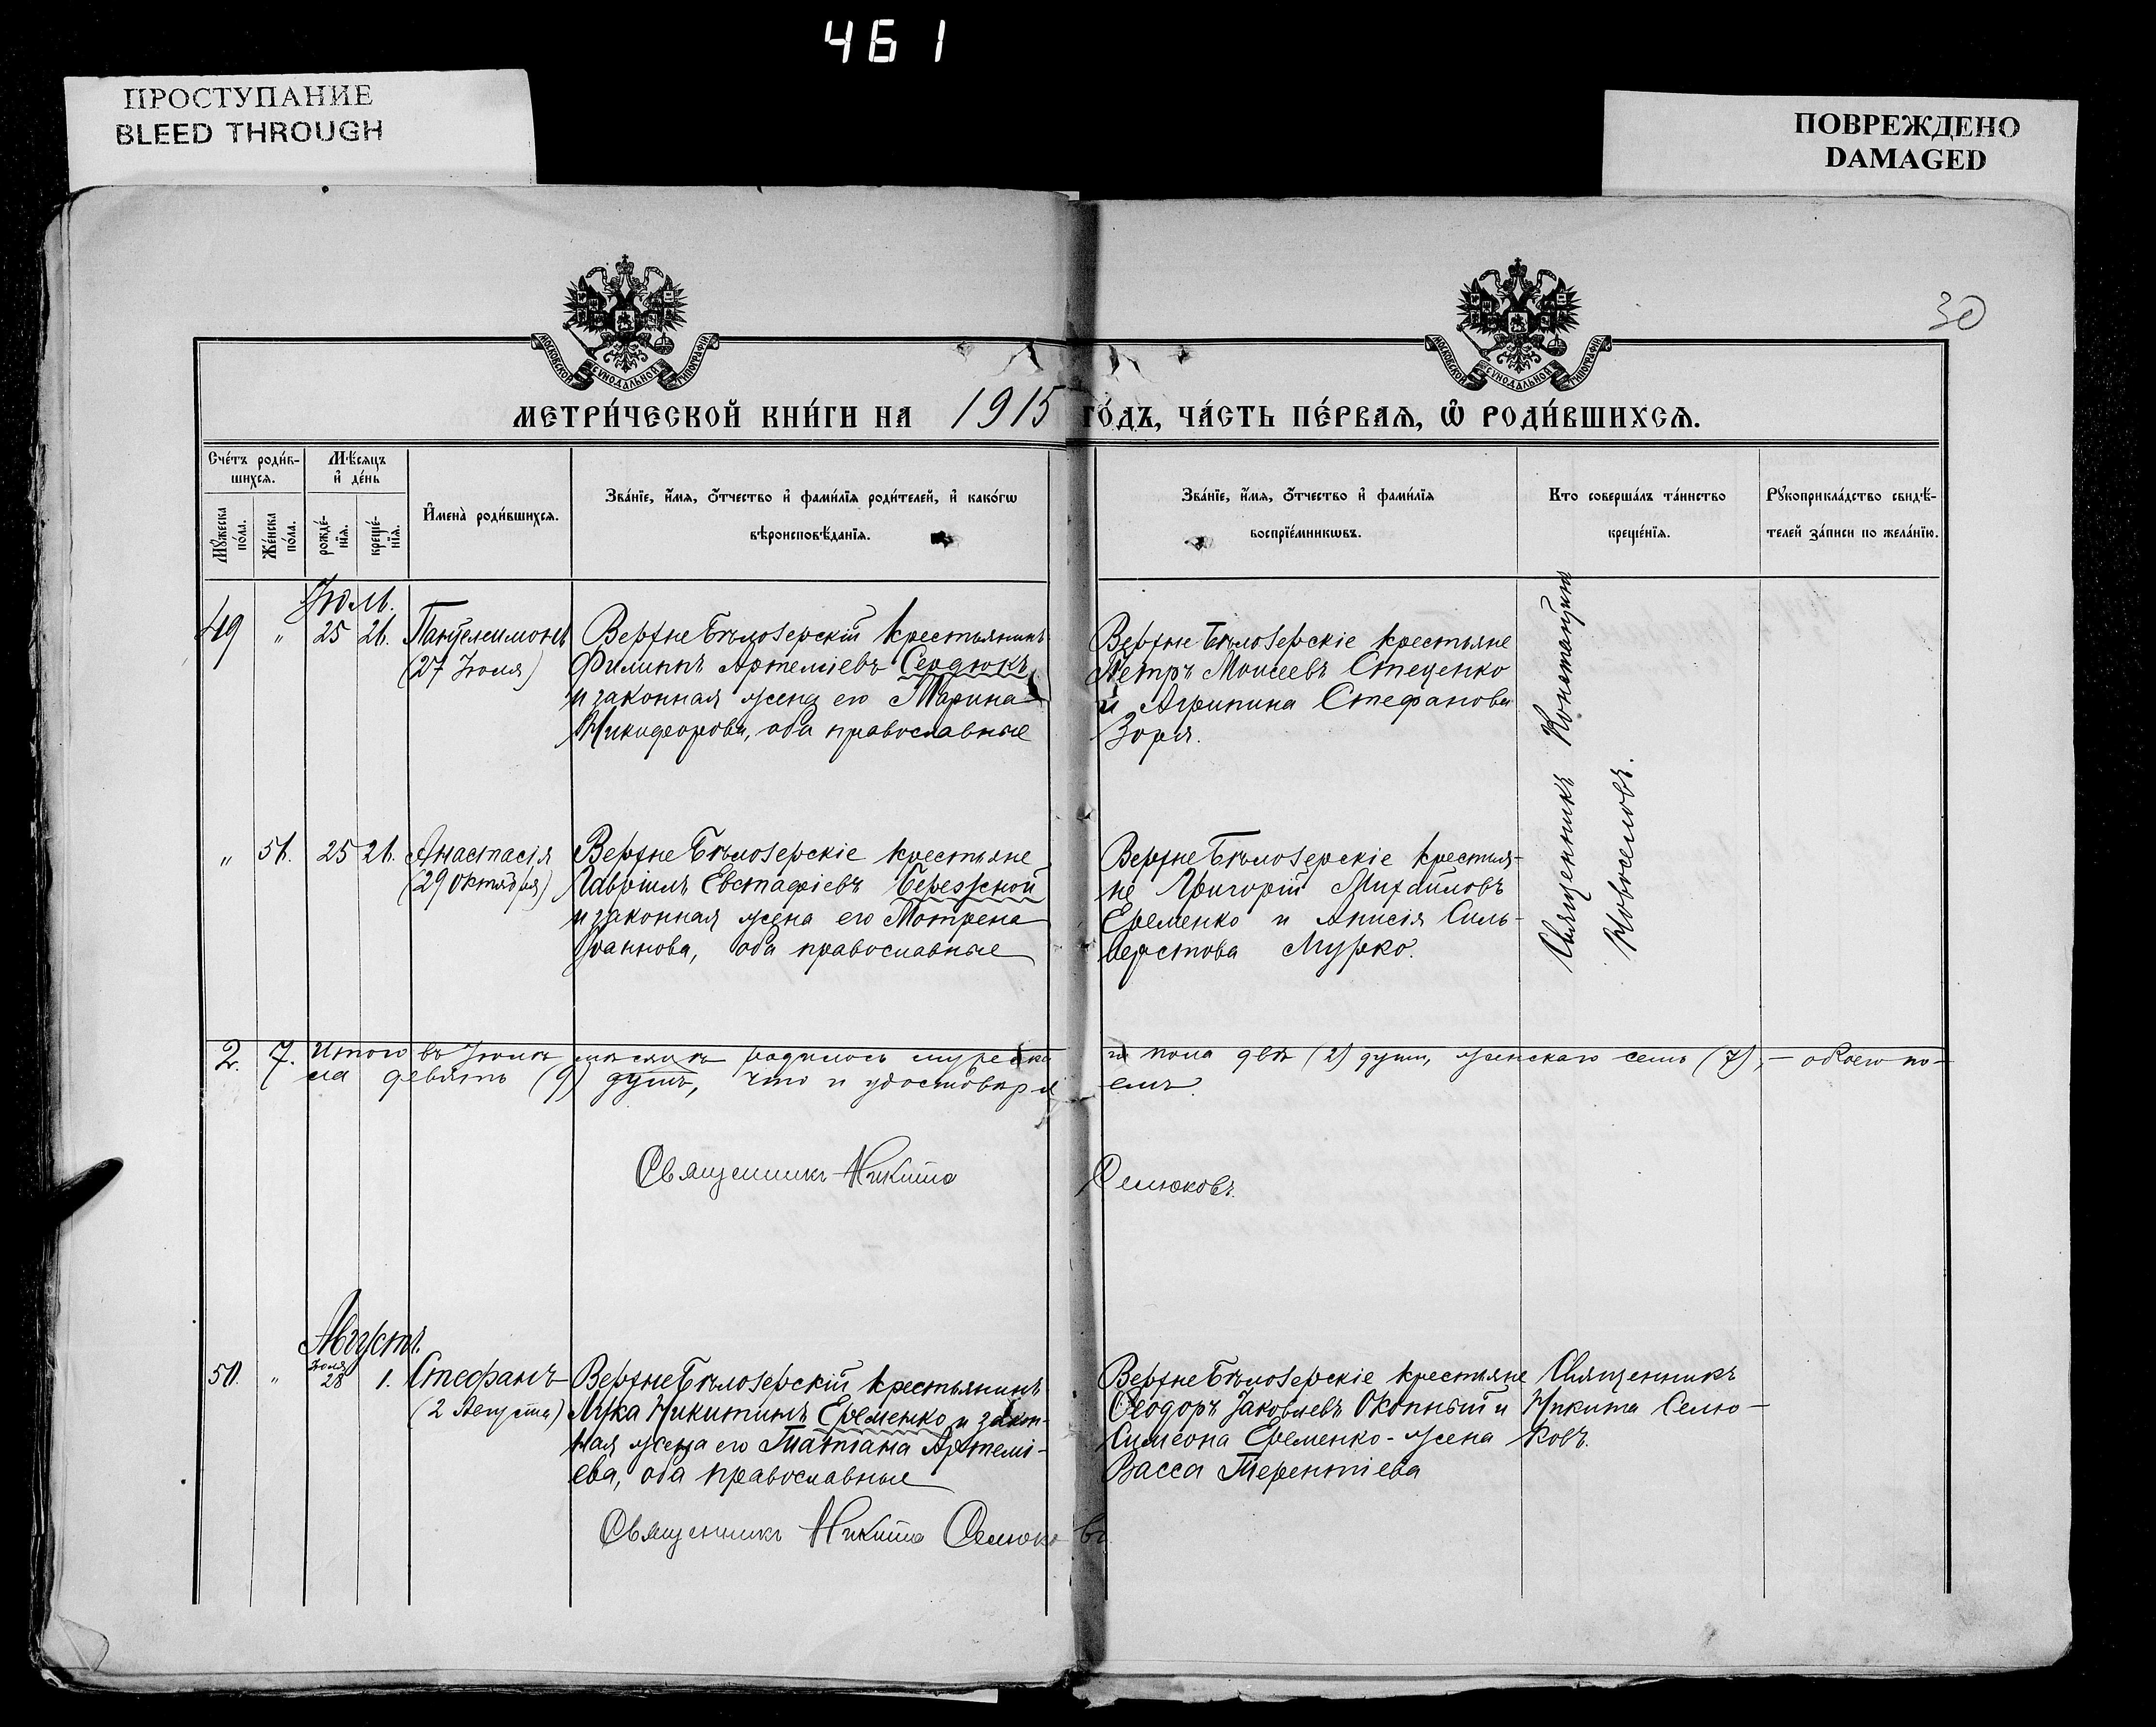 461
ПРОСТУПАНИЕ
BLEED THROUGH
ПОВРЕЖДЕНО
DAMAGED
30
МОСКОВСКОЙ СѴНОДАЛЬНОЙ ТИПОГРАФІИ
МОСКОВСКОЙ СѴНОДАЛЬНОЙ ТИПОГРАФІИ
МЕТРИ́ЧЕСКОЙ КНИ́ГИ НА 1915 ГО́ДЪ, ЧА́СТЬ ПЕ́РВАѦ, Ѡ҆ РОДИ́ВШИХСѦ.
Сче́тъ роди́в-
шихсѧ.
Мꙋ́жеска
по́ла.
Же́нска
по́ла.
Мѣ́сѧцъ
и҆ де́нь
рожде́-
нїѧ.
креще́-
нїѧ.
И҆мена̀ роди́вшихсѧ.
Зва́нїе, и҆́мѧ, ѻ҆́тчество и҆ фами́лїѧ роди́телей, и҆ како́гѡ
вѣроисповѣ́данїѧ.
Зва́нїе, и҆́мѧ, ѻ҆́тчество и҆ фами́лїѧ
воспрїе́мникѡвъ.
Кто соверша́лъ та́инство
креще́нїѧ.
Рꙋкоприкла́дство свидѣ́-
телей за́писи по жела́нїю.
Іюль.
49 " 25 26. Пантелеимонъ
(27 Іюля)
Верхне Бѣлозерскій крестьянинъ
Филиппъ Артеміевъ Сердюкъ
и законная жена его Марина
Никифорова, оба православные
Верхне Бѣлозерскіе крестьяне
Петръ Моисеевъ Стеценко
и Агрипина Стефанова
Зоря.
Священникъ Константинъ
Новоселовъ.
" 51. 25 26. Анастасія
(29 Октября)
Верхне Бѣлозерскіе крестьяне
Гавріилъ Евстафіевъ Березской
и законная жена его Мотрена
Іоаннова, оба православные
Верхне Бѣлозерскіе крестья-
не Григорій Михайловъ
Еременко и Анисія Силь-
верстова Мурко.
2. 7. Итого въ Іюлѣ мѣсяцѣ родилось мужска
го пола двѣ (2) души, женскаго семь (7), — обоего по-
ла девять (9) душъ, что и удостовѣря
емъ.
Священникъ Никита Селюковъ.
Августъ.
50. " Іюля 28 1. Стефанъ
(2 Августа)
Верхне Бѣлозерскій крестьянинъ
Лука Никитинъ Еременко и закон-
ная жена его Татіана Артемі-
ева, оба православные
Верхне Бѣлозерскіе крестьяне
Ѳеодоръ Іаковлевъ Окопный и
Симеона Еременко - жена
Васса Терентіева
Священникъ
Никита Селю-
ковъ.
Священникъ Никита Селюковъ